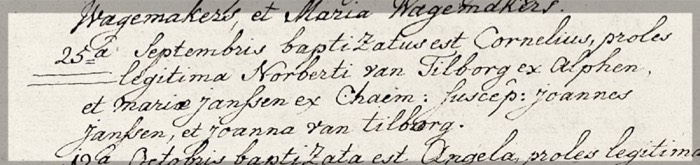 Wagemakers, et Maria Wagemakers.
25ª Septembris baptizatus est Cornelius, proles
legitima Norberti van Tilborg ex Alphen,
et mariæ janssen ex Chaem: suscep: joannes
janssen, et joanna van tilborg.
12ª Octobris baptizata est Angela, proles legitim